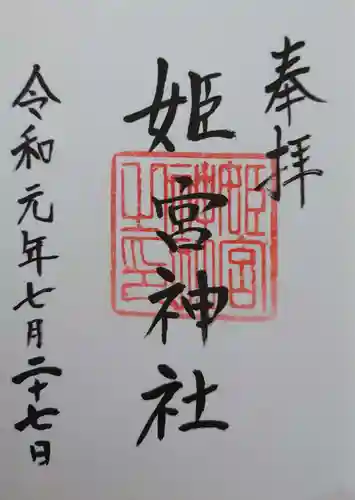 奉拝
姫宮神社
令和元年七月二十七日